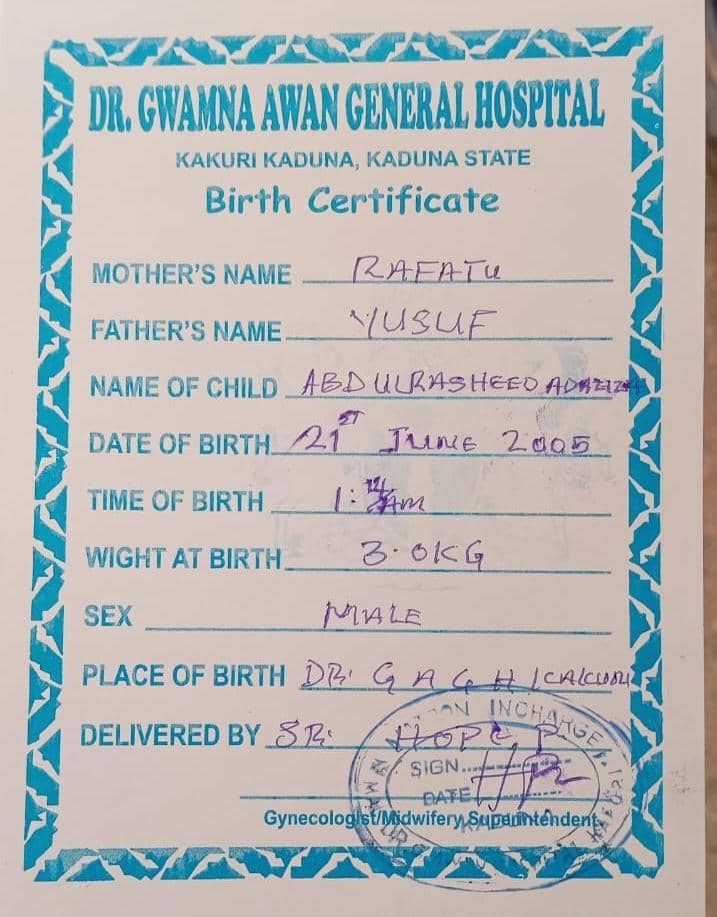 DR. GWAMNA AWAN GENERAL HOSPITAL
KAKURI KADUNA, KADUNA STATE
Birth Certificate
MOTHER'S NAME RAFATU
FATHER'S NAME YUSUF
NAME OF CHILD ABDULRASHEED
DATE OF BIRTH 21ST JUNE 2005
TIME OF BIRTH 1: AM
WIGHT AT BIRTH 3.0KG
SEX MALE
PLACE OF BIRTH DR. G A G H KAKURI
DELIVERED BY SR. HOPE P.
INCHARGE
SIGN
DATE
KADUNA
Gynecologist/Midwifery Superintendent